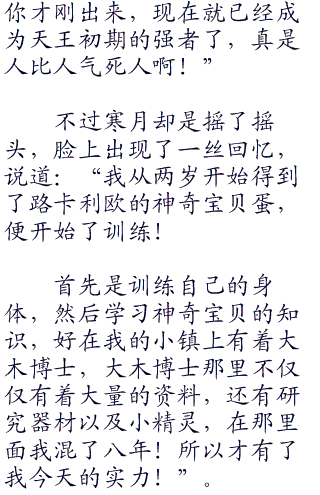 你才刚出来，现在就已经成
为天王初期的强者了，真是
人比人气死人啊！”
不过寒月却是摇了摇
头，脸上出现了一丝回忆，
说道：“我从两岁开始得到
了路卡利欧的神奇宝贝蛋，
便开始了训练！
首先是训练自己的身
体，然后学习神奇宝贝的知
识，好在我的小镇上有着大
木博士，大木博士那里不仅
仅有着大量的资料，还有研
究器材以及小精灵，在那里
面我混了八年！所以才有了
我今天的实力！”。